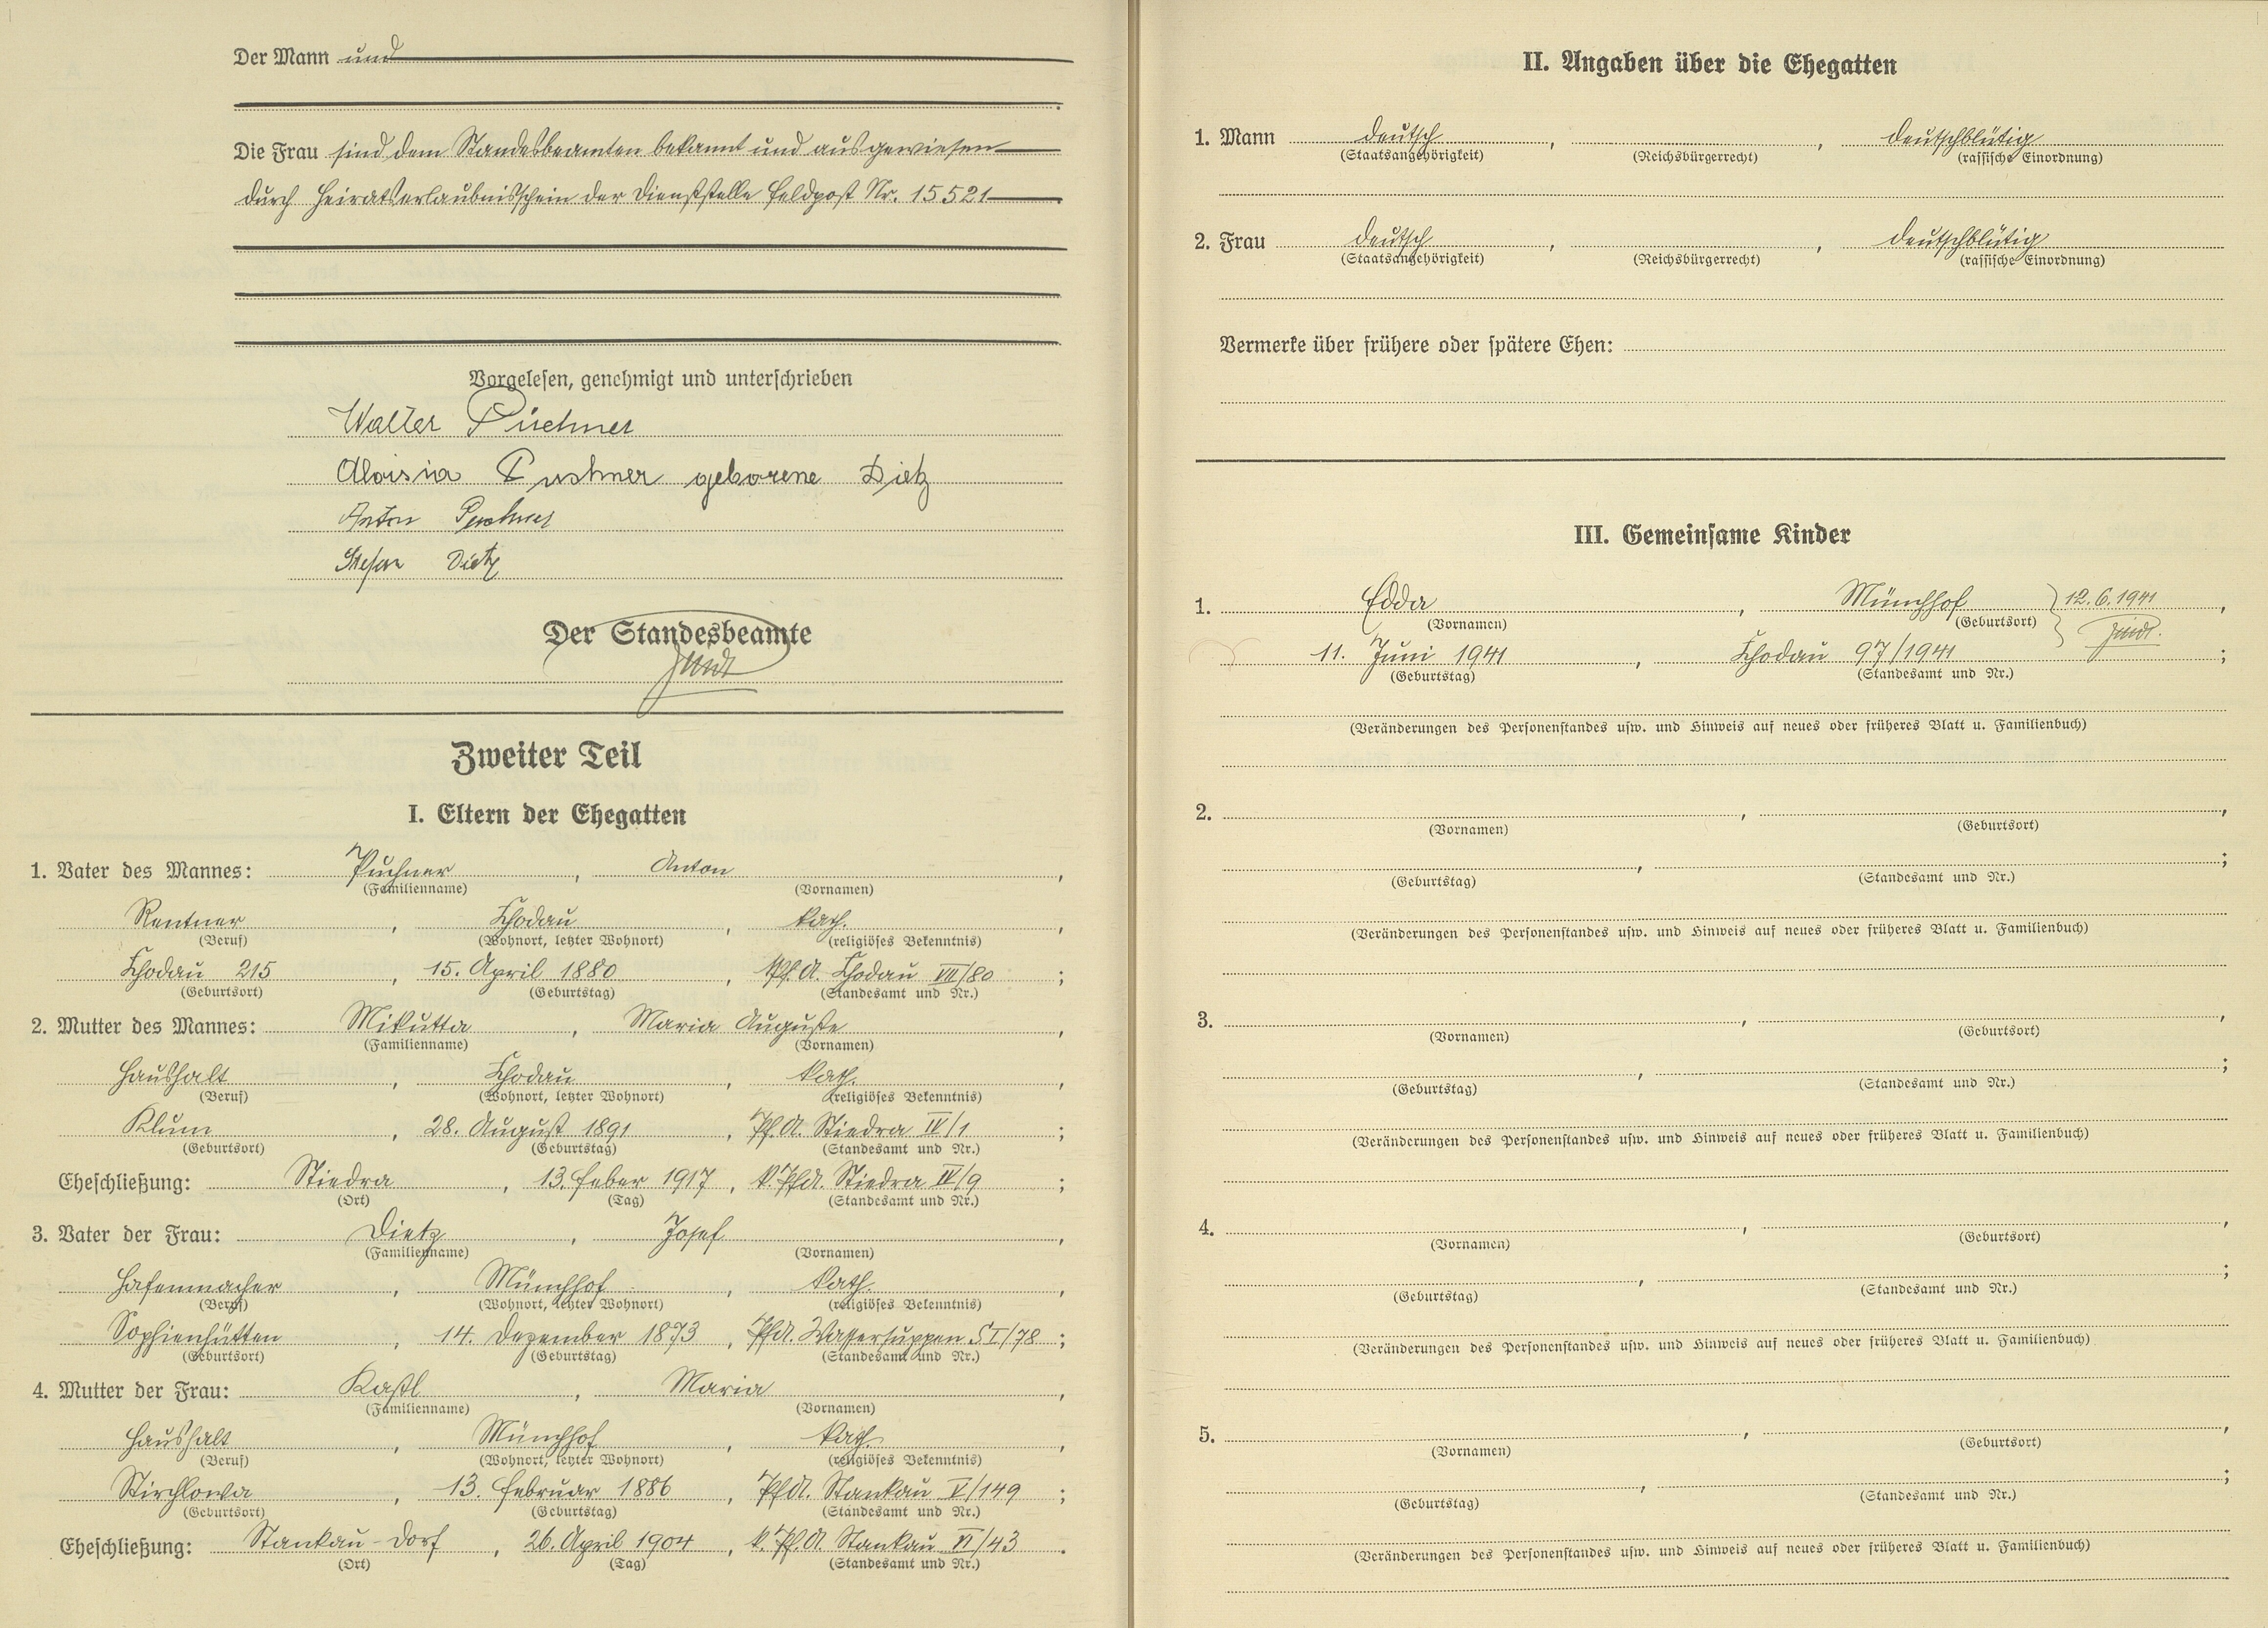 Der Mann und
Die Frau sind dem Standesbeamten bekannt und ausgewiesen
durch Heiratserlaubnisschein der Dienststelle Feldpost Nr. 15521
Vorgelesen, genehmigt und unterschrieben
Walter Püchner
Aloisia Puchner geborene Dietz
Anton Puchner
Stefan Dietz
Der Standesbeamte
Zweiter Teil
I. Eltern der Ehegatten
1. Vater des Mannes: Puchner, Anton,
(Familienname) (Vornamen)
Rentner, Chodau, kath.,
(Beruf) (Wohnort, letzter Wohnort) (religiöses Bekenntnis)
Chodau 215, 15. April 1880, Pf. A. Chodau VIII/80;
(Geburtsort) (Geburtstag) (Standesamt und Nr.)
2. Mutter des Mannes: Mikutta, Maria Auguste,
(Familienname) (Vornamen)
Haushalt, Chodau, kath.,
(Beruf) (Wohnort, letzter Wohnort) (religiöses Bekenntnis)
Klum, 28. August 1891, Pf. A. Stiedra IV/1;
(Geburtsort) (Geburtstag) (Standesamt und Nr.)
Eheschließung: Stiedra, 13. Feber 1917, k. PfA. Stiedra IV/9;
(Ort) (Tag) (Standesamt und Nr.)
3. Vater der Frau: Dietz, Josef,
(Familienname) (Vornamen)
Hafenmacher, Münchhof, kath.,
(Beruf) (Wohnort, letzter Wohnort) (religiöses Bekenntnis)
Sophienhütten, 14. Dezember 1873, PfA. Wassersuppen I/78;
(Geburtsort) (Geburtstag) (Standesamt und Nr.)
4. Mutter der Frau: Kastl, Maria,
(Familienname) (Vornamen)
Haushalt, Münchhof, kath.,
(Beruf) (Wohnort, letzter Wohnort) (religiöses Bekenntnis)
Stirchlowa, 13. Februar 1886, PfA. Stankau V/149;
(Geburtsort) (Geburtstag) (Standesamt und Nr.)
Eheschließung: Stankau-Dorf, 26. April 1904, k. Pf. A. Stankau VI/43.
(Ort) (Tag) (Standesamt und Nr.)
II. Angaben über die Ehegatten
1. Mann deutsch, , deutschblütig
(Staatsangehörigkeit) (Reichsbürgerrecht) (rassische Einordnung)
2. Frau deutsch, , deutschblütig
(Staatsangehörigkeit) (Reichsbürgerrecht) (rassische Einordnung)
Vermerke über frühere oder spätere Ehen:
III. Gemeinsame Kinder
1. Edda, Münchhof 12.6.1941,
(Vornamen) (Geburtsort)
11. Juni 1941, Chodau 97/1941;
(Geburtstag) (Standesamt und Nr.)
(Veränderungen des Personenstandes usw. und Hinweis auf neues oder früheres Blatt u. Familienbuch)
2. , ,
(Vornamen) (Geburtsort)
, ;
(Geburtstag) (Standesamt und Nr.)
(Veränderungen des Personenstandes usw. und Hinweis auf neues oder früheres Blatt u. Familienbuch)
3. , ,
(Vornamen) (Geburtsort)
, ;
(Geburtstag) (Standesamt und Nr.)
(Veränderungen des Personenstandes usw. und Hinweis auf neues oder früheres Blatt u. Familienbuch)
4. , ,
(Vornamen) (Geburtsort)
, ;
(Geburtstag) (Standesamt und Nr.)
(Veränderungen des Personenstandes usw. und Hinweis auf neues oder früheres Blatt u. Familienbuch)
5. , ,
(Vornamen) (Geburtsort)
, ;
(Geburtstag) (Standesamt und Nr.)
(Veränderungen des Personenstandes usw. und Hinweis auf neues oder früheres Blatt u. Familienbuch)